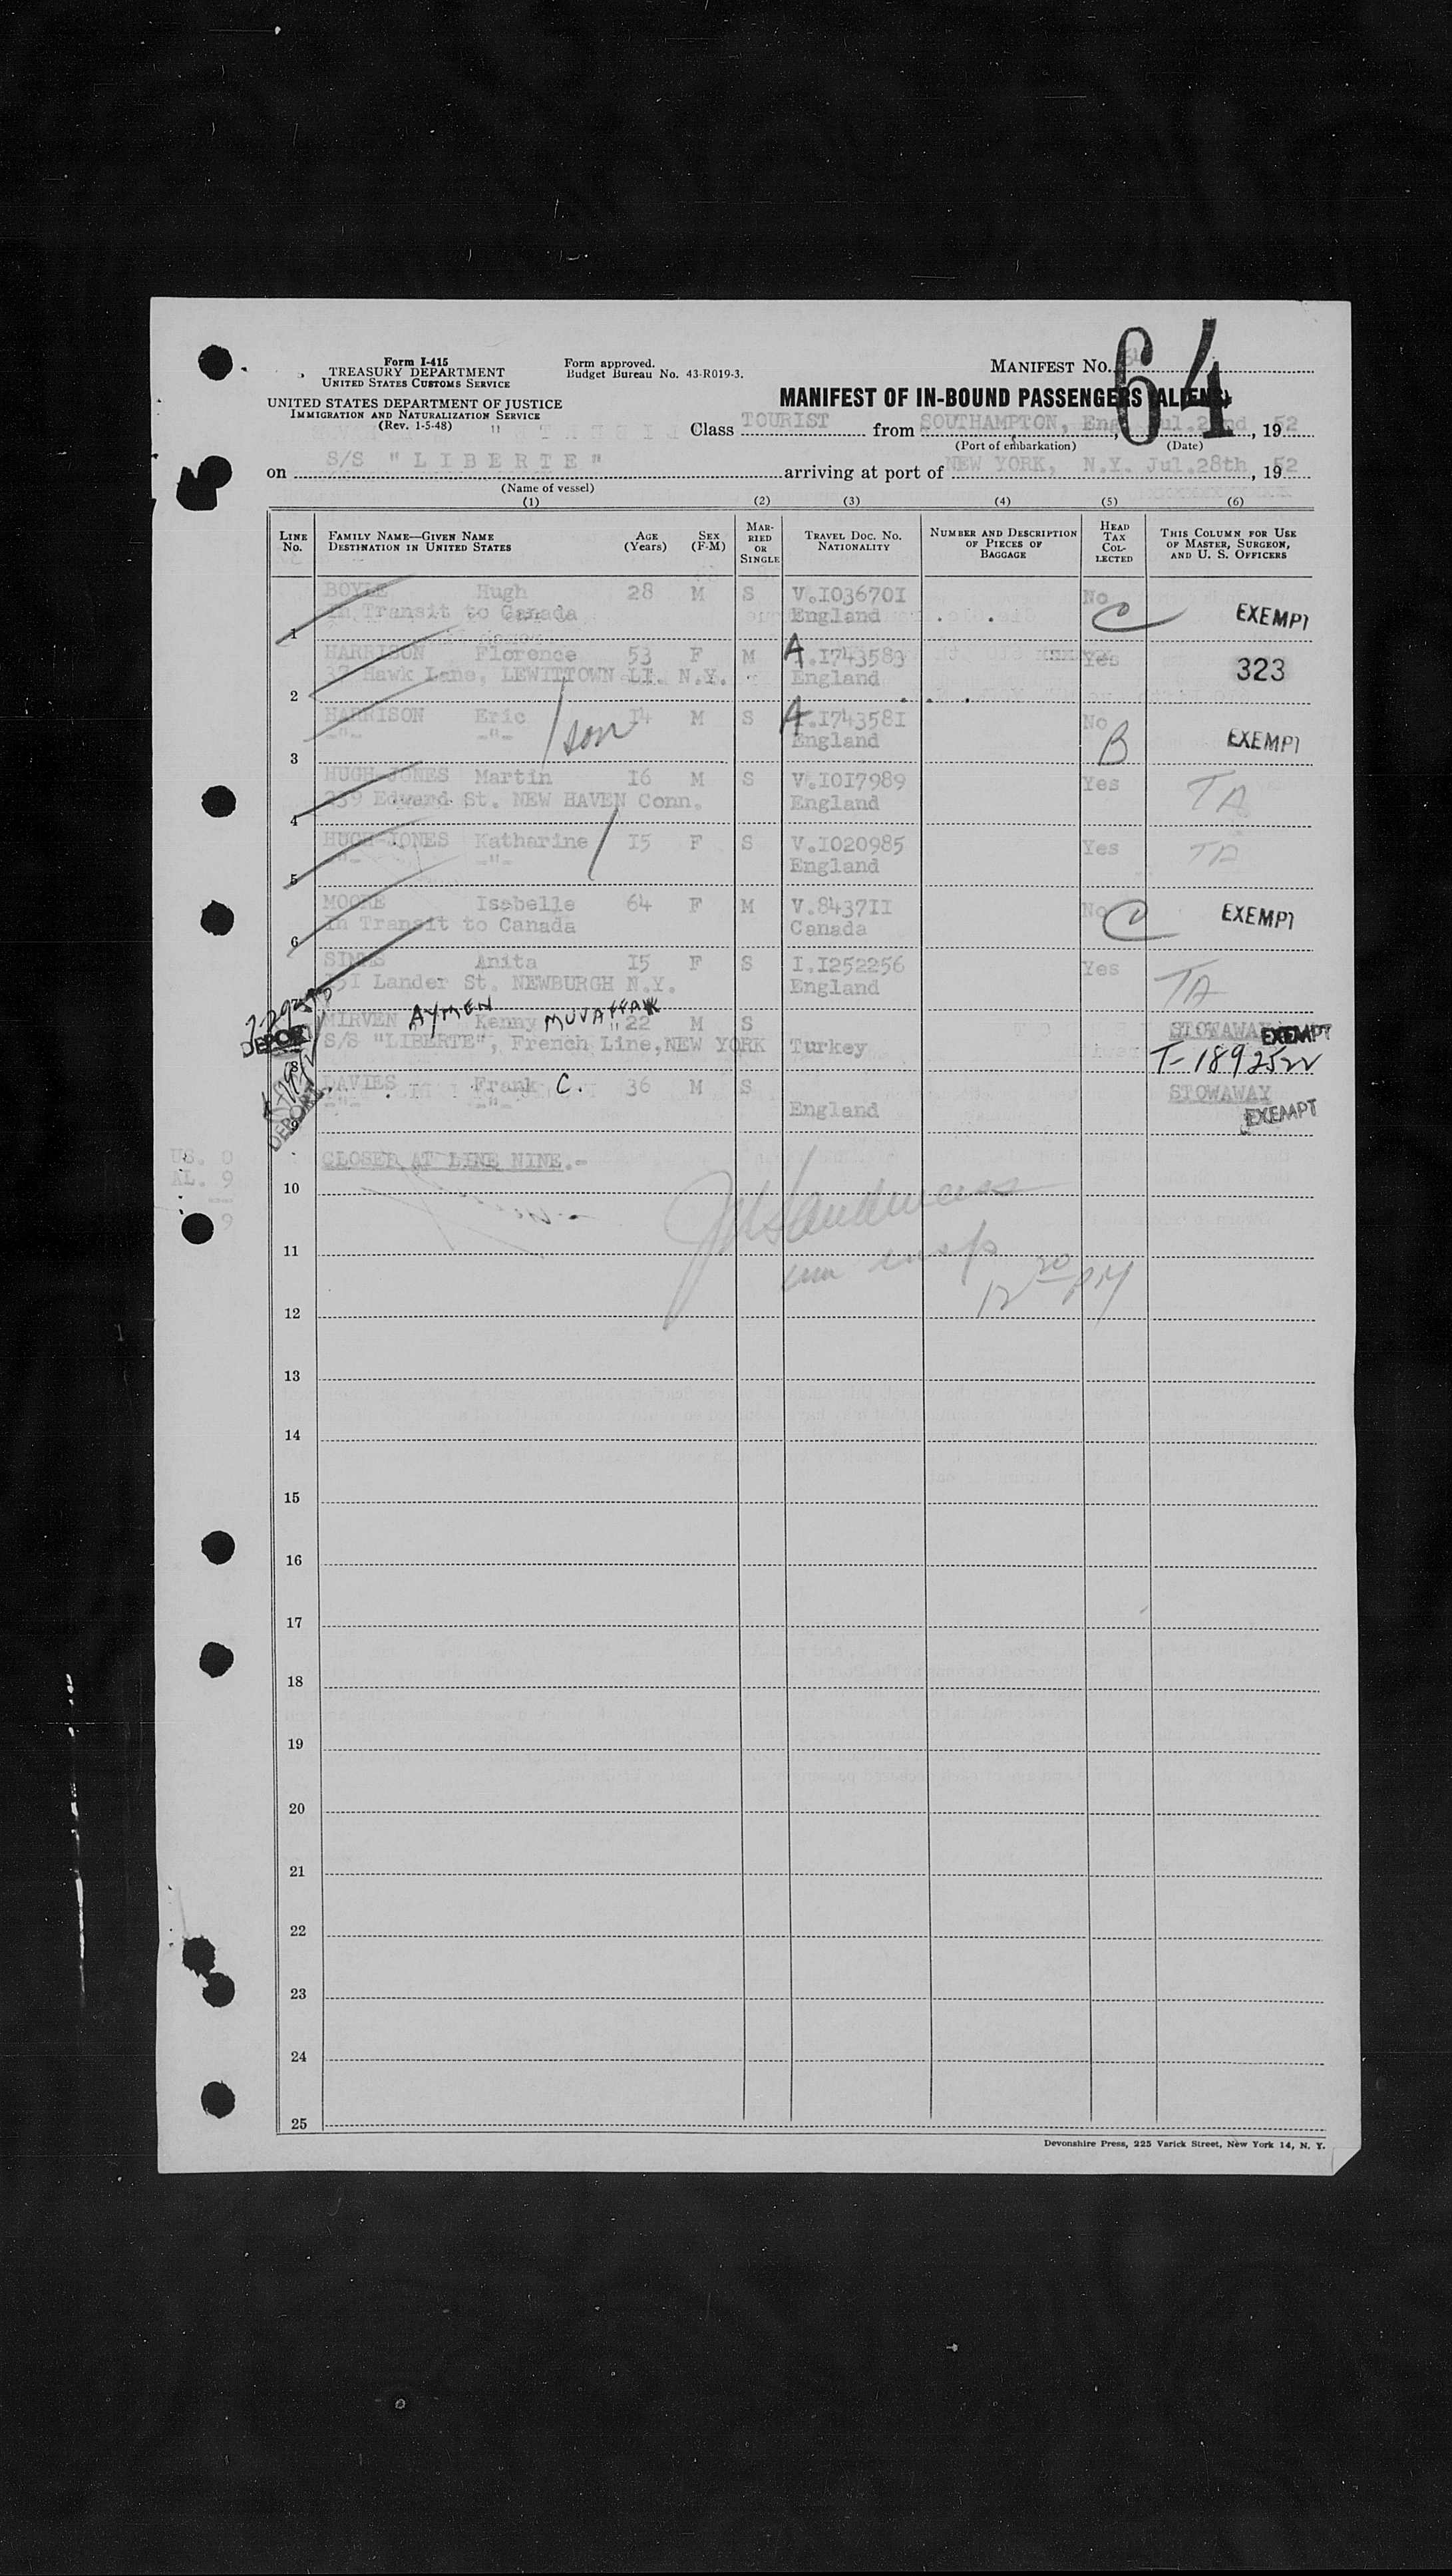 Form I-415
TREASURY DEPARTMENT
UNITED STATES CUSTOMS SERVICE
Form approved.
Budget Bureau No. 43-R019-3.
MANIFEST No.
64
UNITED STATES DEPARTMENT OF JUSTICE
IMMIGRATION AND NATURALIZATION SERVICE
(Rev. 1-5-48)
MANIFEST OF IN-BOUND PASSENGERS (ALIENS)
Class TOURIST from SOUTHAMPTON, Eng., Jul.22nd, 1952
(Port of embarkation) (Date)
on S/S "LIBERTE" arriving at port of NEW YORK, N.Y. Jul.28th, 1952
(Name of vessel)
(1) (2) (3) (4) (5) (6)
LINE No. FAMILY NAME—GIVEN NAME DESTINATION IN UNITED STATES AGE (Years) SEX (F-M) MARRIED OR SINGLE TRAVEL DOC. NO. NATIONALITY NUMBER AND DESCRIPTION OF PIECES OF BAGGAGE HEAD TAX COLLECTED THIS COLUMN FOR USE OF MASTER, SURGEON, AND U. S. OFFICERS
BOYLE Hugh 28 M S V.I036701 No
In Transit to Canada England C EXEMPT
1
HARRISON Florence 53 F M A.I743583 Yes 323
37 Hawk Lane, LEWITTOWN LI. N.Y. England
2
HARRISON Eric 14 M S A.I743581 No
-"- -"- son England B EXEMPT
3
HUGH-JONES Martin I6 M S V.I017989 Yes TA
239 Edward St. NEW HAVEN Conn. England
4
HUGH-JONES Katharine I5 F S V.I020985 Yes TA
-"- -"- England
5
MOORE Isabelle 64 F M V.8437II No C EXEMPT
In Transit to Canada Canada
6
SIMMS Anita I5 F S I.I252256 Yes TA
I5I Lander St. NEWBURGH N.Y. England
MIRVEN AYMEN Kenny MUVAFFAK 22 M S STOWAWAY EXEMPT
DEPORT S/S "LIBERTE", French Line, NEW YORK Turkey T-1892522
8
DAVIES Frank C. 36 M S STOWAWAY
DEPORT -"- -"- England EXEMPT
9
US. 0
AL. 9
9
CLOSED AT LINE NINE.-
10
11
imm insp
12 20 PM
12
13
14
15
16
17
18
19
20
21
22
23
24
25
Devonshire Press, 225 Varick Street, New York 14, N. Y.